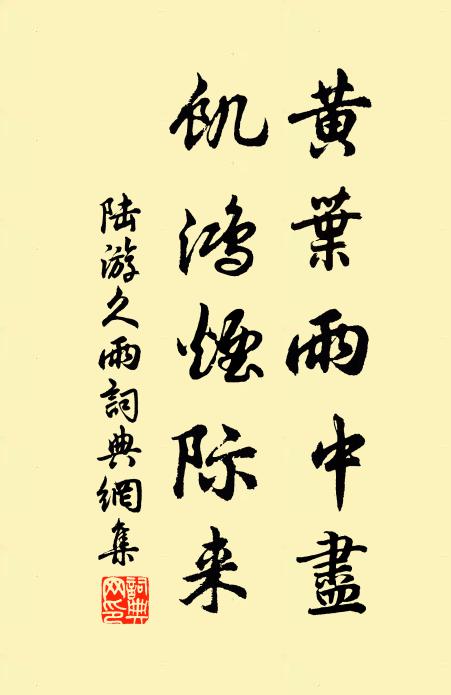 黄葉雨中盡
飢鴻煙际来
陆游久雨詞典網集
詞典网印